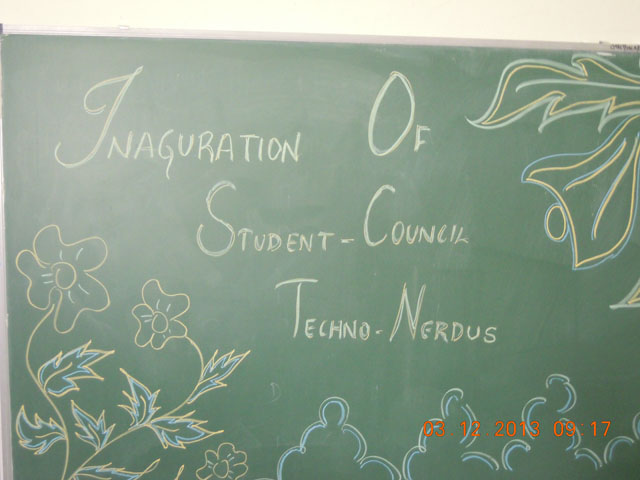 INAGURATION OF
STUDENT-COUNCIL
TECHNO-NERDUS
03 12 2013 09:17